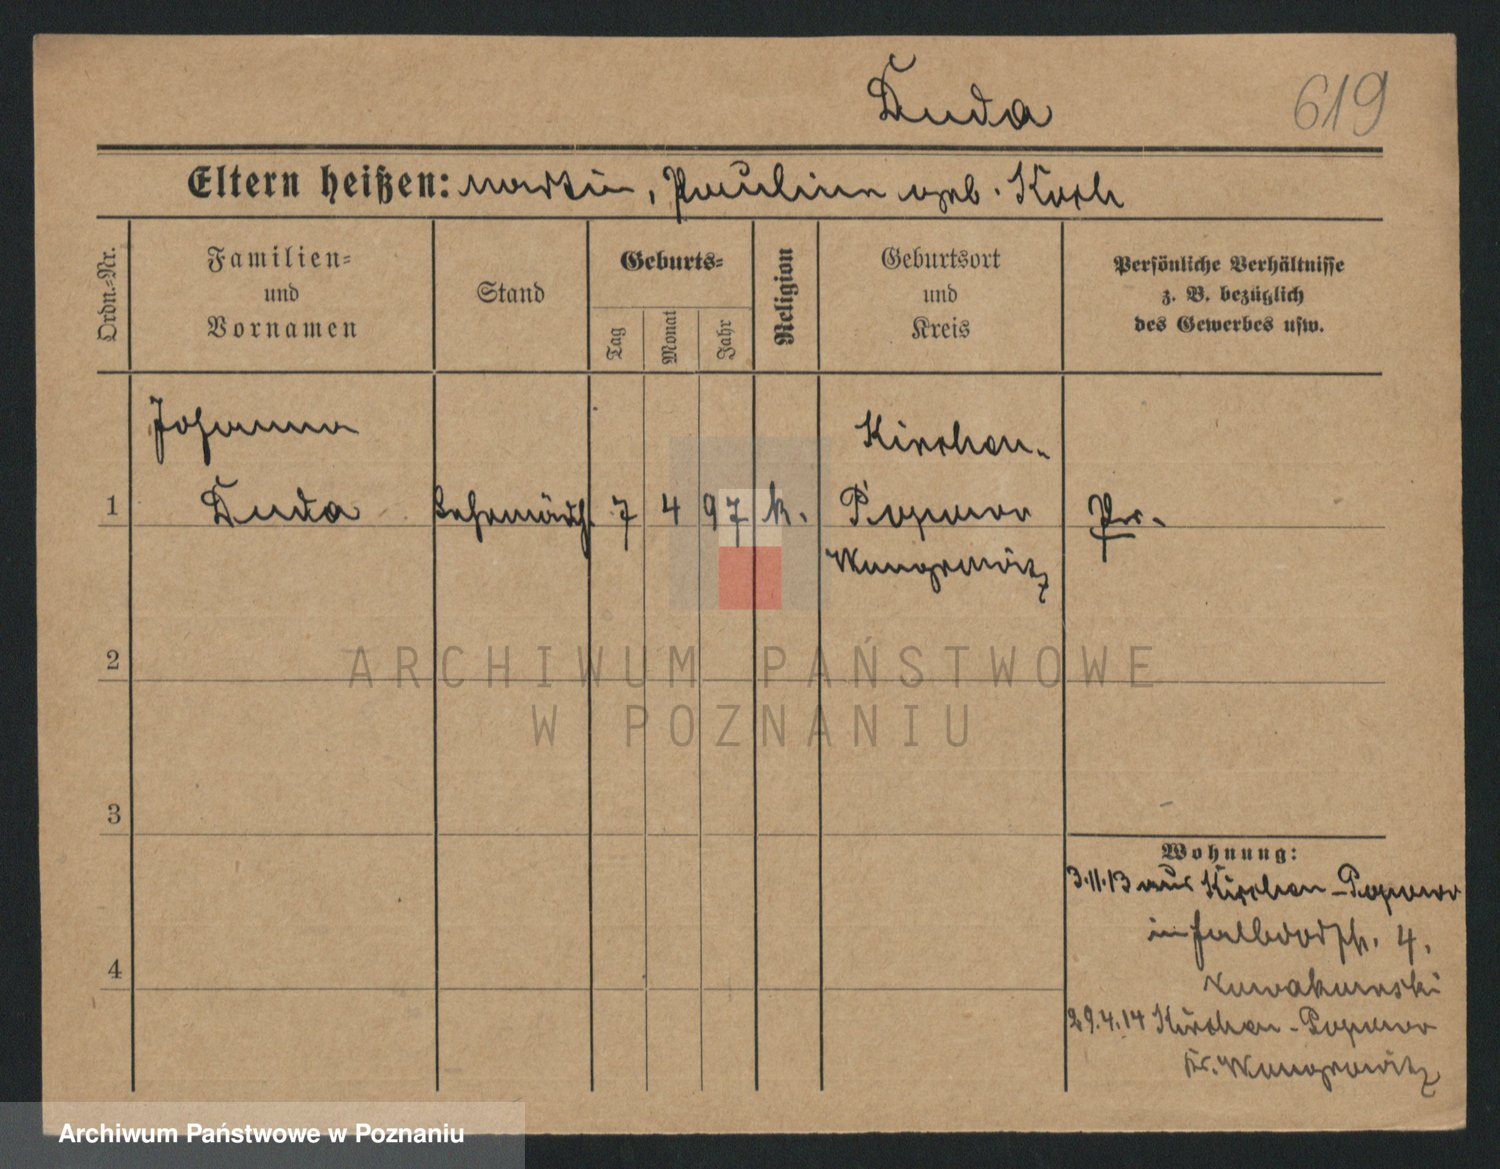 Duda
619
Eltern heißen: Martin, Pauline geb. Koch
Ordn.-Nr.
Familien- und Vornamen
Stand
Geburts-
Tag
Monat
Jahr
Religion
Geburtsort und Kreis
Persönliche Verhältnisse
z. B. bezüglich
des Gewerbes usw.
Johanna
Kirchen-
1 Duda Lehrmädch. 7 4 97 k. Popowo Pr.
Wongrowitz
ARCHIWUM PAŃSTWOWE
W POZNANIU
2
3
4
Wohnung:
3.11.13 aus Kirchen-Popowo
in 4.
Nowakowski
29.4.14 Kirchen-Popowo
Kr. Wongrowitz
Archiwum Państwowe w Poznaniu